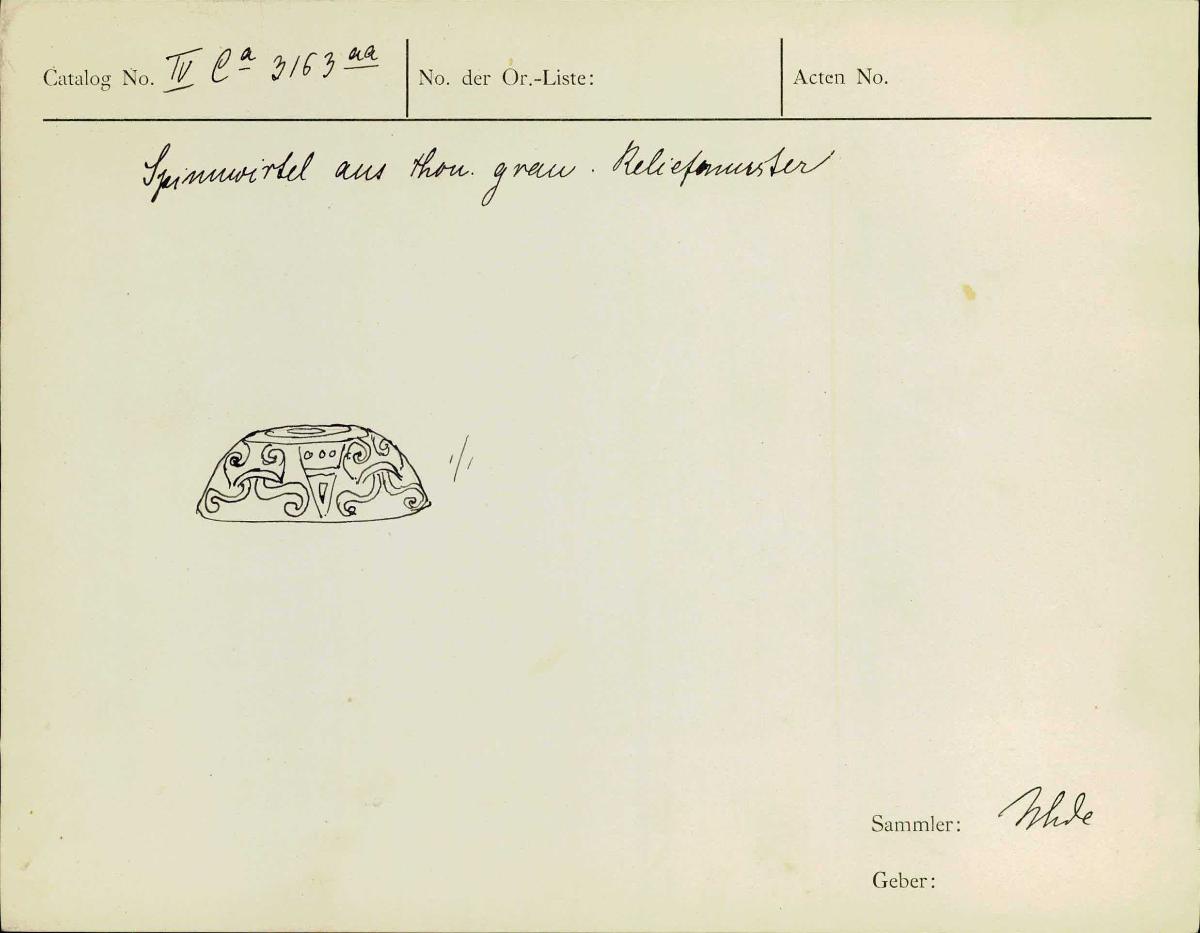 Catalog No. IV Ca 3163 aa
No. der Or.-Liste:
Acten No.
Spinnwirtel aus thon. grau. Reliefmuster
1/1
Sammler: Uhde
Geber: